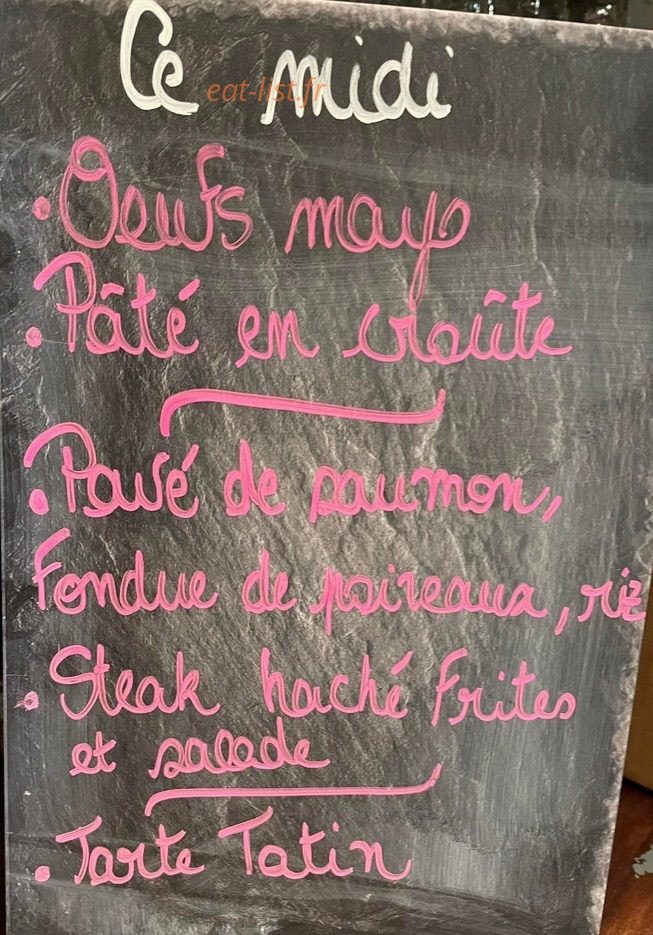 Ce midi
eat-list.fr
• Oeufs mayo
• Pâté en croûte
• Pavé de saumon,
Fondue de poireaux, riz
• Steak haché Frites
et salade
• Tarte Tatin